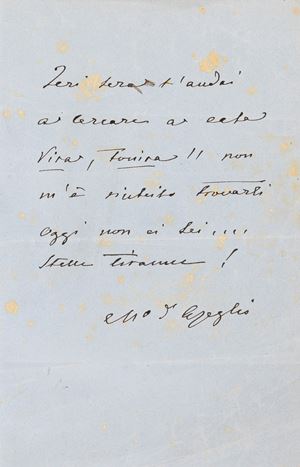 Ieri sera t'andai
a cercare a casa
Vira, tonira!! non
m'è riuscito trovarti
oggi non ci sei....
Stelle tiranne!
M.o d'Azeglio